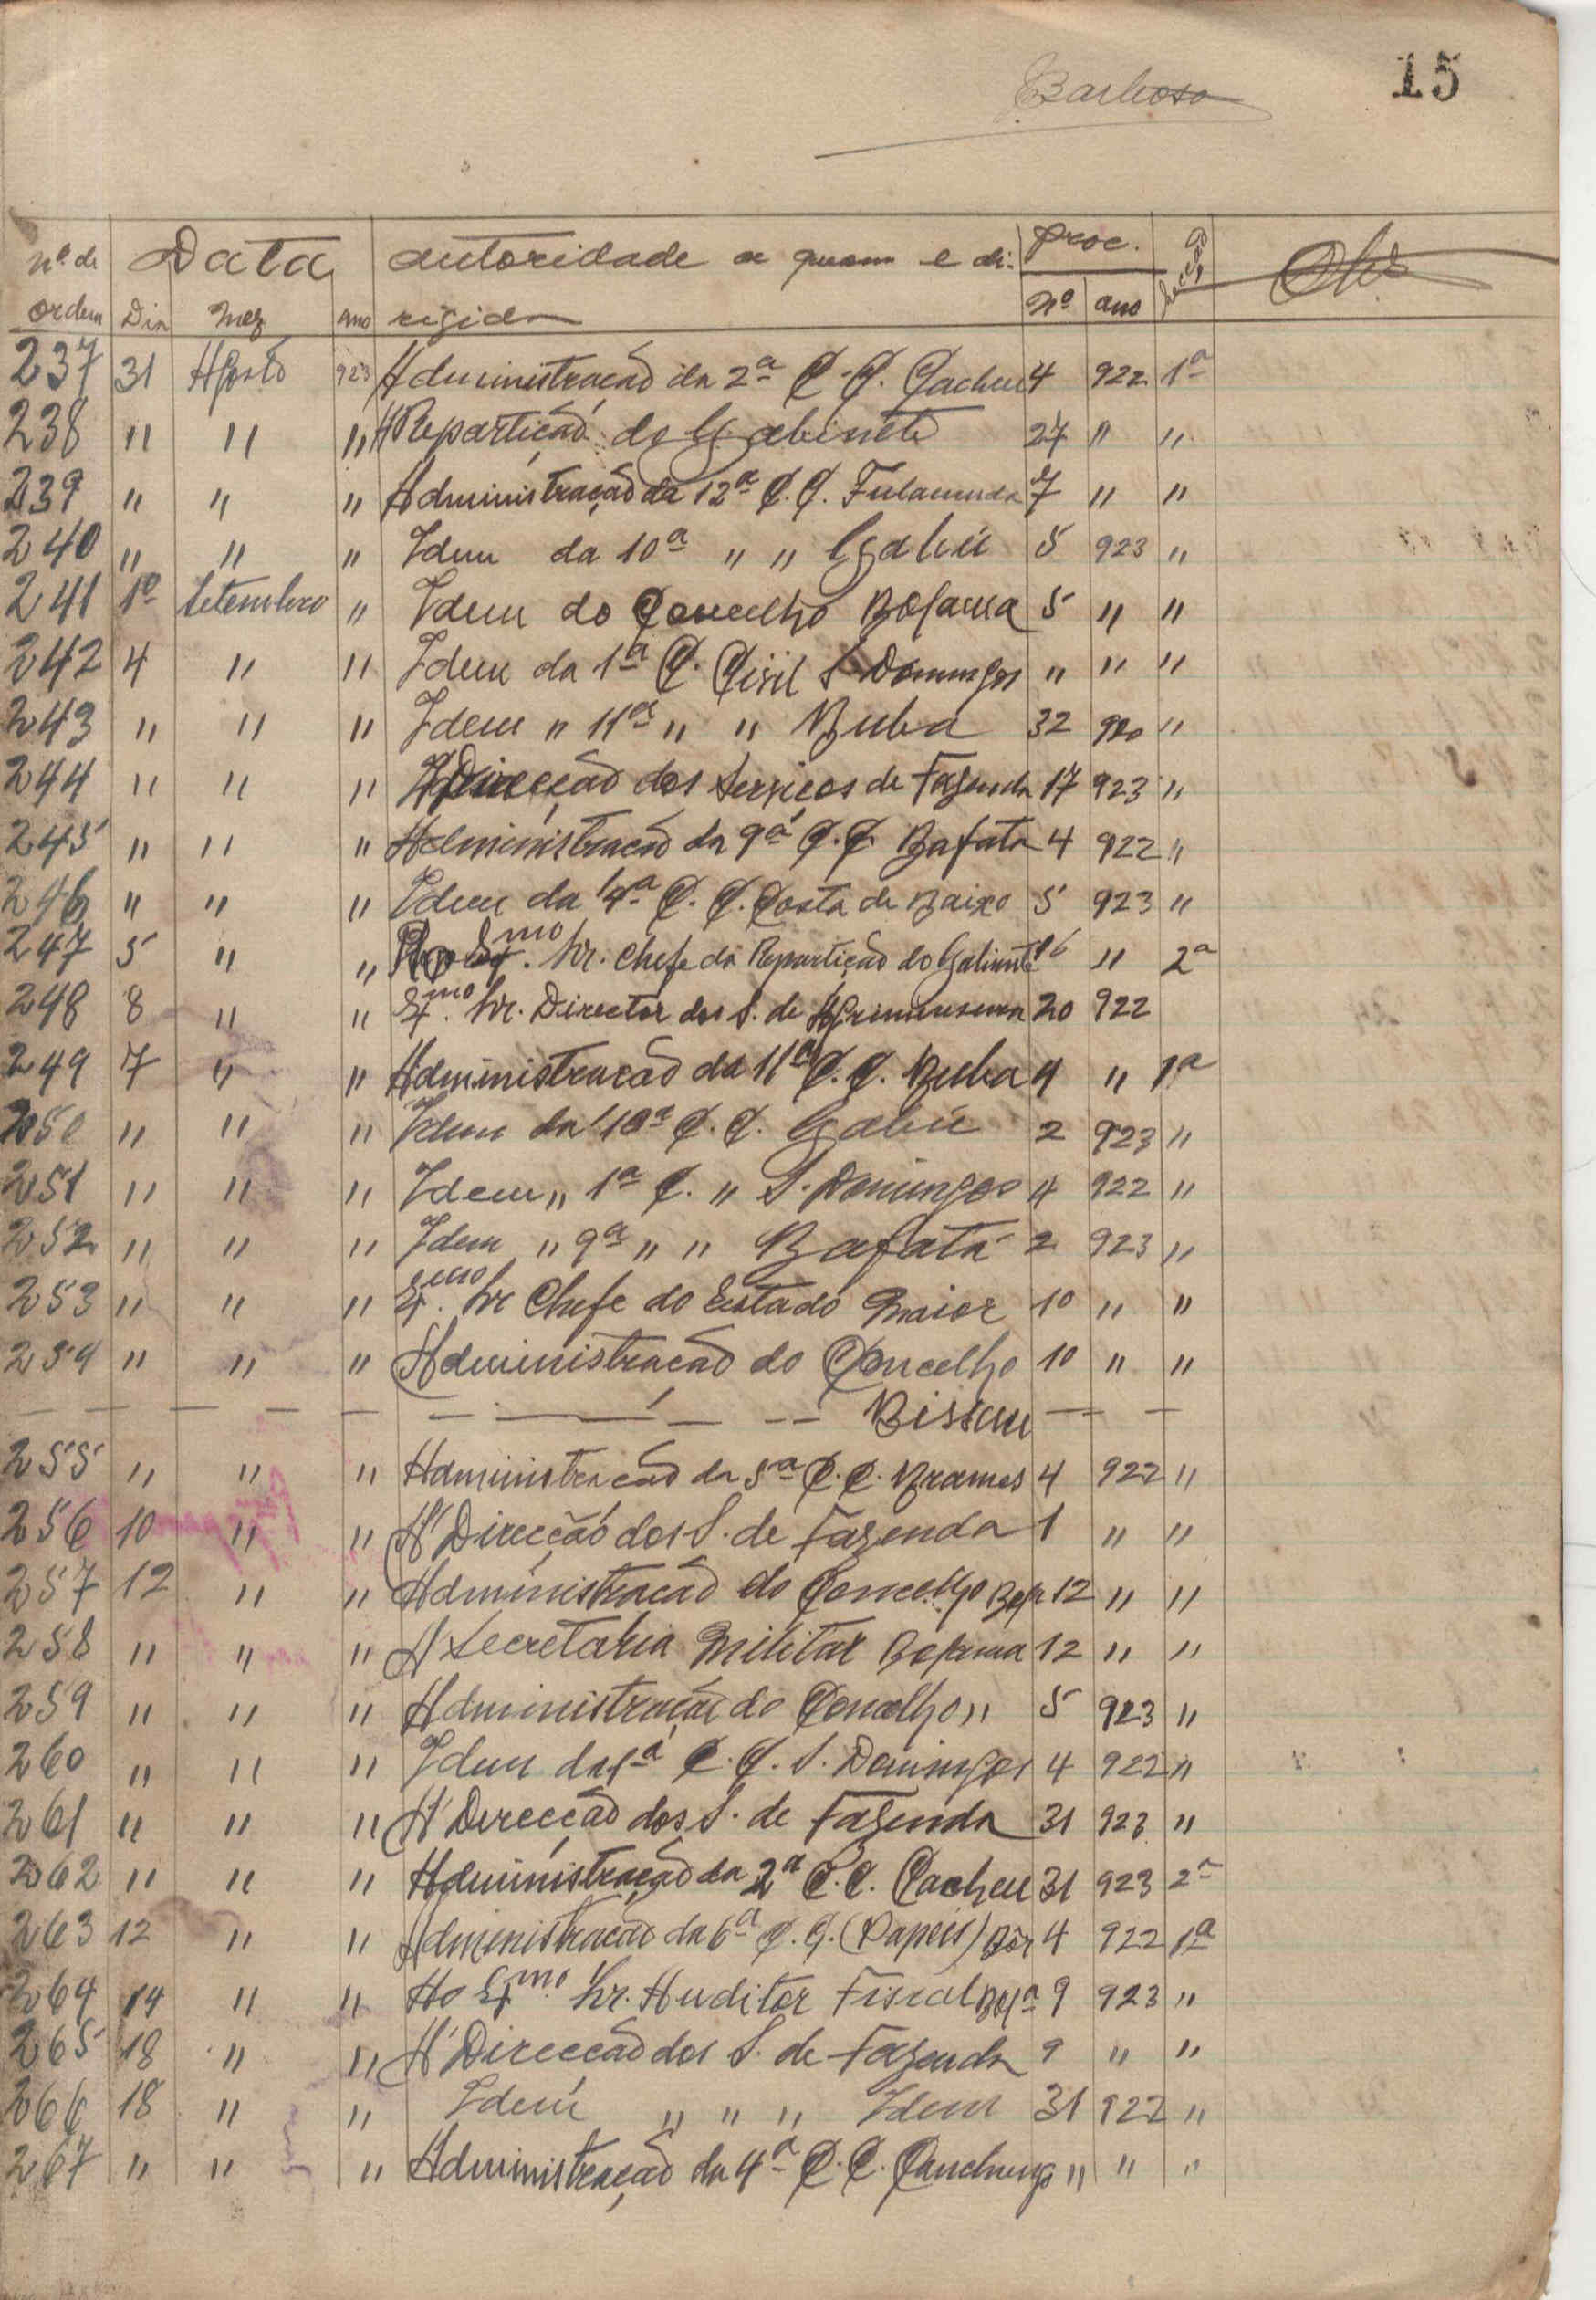 Barbosa
15
nº de ordem | Data | autoridade a quem e di- | proc. | Secção | Obs
Dia | mez | ano | rigida | nº | ano
237 31 Agosto 923 Administração da 2ª C. C. Cacheu 4 922 1ª
238 " " " Á Repartição do Gabinete 27 " "
239 " " " Administração da 12ª C. C. Fulacunda 7 " "
240 " " " Idem da 10ª " " Gabú 5 923 "
241 1º Setembro " Idem do Concelho Bolama 5 " "
242 4 " " Idem da 1ª C. Civil S Domingos " " "
243 " " " Idem " 11ª " " Buba 32 920 "
244 " " " Direcção dos Serviços de Fazenda 17 923 "
245 " " " Administração da 9ª C. C. Bafata 4 922 "
246 " " " Idem da 4ª C. C. Costa de Baixo 5 923 "
247 5 " " Ao Exmo. Sr. Chefe da Repartição do Gabinete 16 " 2ª
248 8 " " Exmo. Sr. Director dos S. de Agrimensura 20 922
249 7 " " Administração da 11ª C. C. Buba 4 " 1ª
250 " " " Idem da 10ª C. C. Gabú 2 923 "
251 " " " Idem " 1ª C. " S. Domingos 4 922 "
252 " " " Idem " 9ª " " Bafatá 2 923 "
253 " " " Exmo. Sr Chefe do Estado Maior 10 " "
254 " " " Administração do Concelho 10 " "
— — — — — — — — — — Bissau — —
255 " " " Administração da 5ª C. C. Brames 4 922 "
256 10 " " Á Direcção dos S. de Fazenda 1 " "
257 12 " " Administração do Concelho 12 " "
258 " " " Á Secretaria Militar Bolama 12 " "
259 " " " Administração do Concelho " 5 923 "
260 " " " Idem da 1ª C. C. S. Domingos 4 922 "
261 " " " Á Direcção dos S. de Fazenda 31 923 "
262 " " " Administração da 2ª C. C. Cacheu 31 923 2ª
263 12 " " Administração da 6ª C. C. (Papeis) Bôr 4 922 1ª
264 14 " " Ao Exmo. Sr. Auditor Fiscal Bolª 9 923 "
265 18 " " Á Direcção dos S. de Fazenda 9 " "
266 18 " " Idem " " " Idem 31 922 "
267 " " " Administração da 4ª C. C. Canchungo " " "